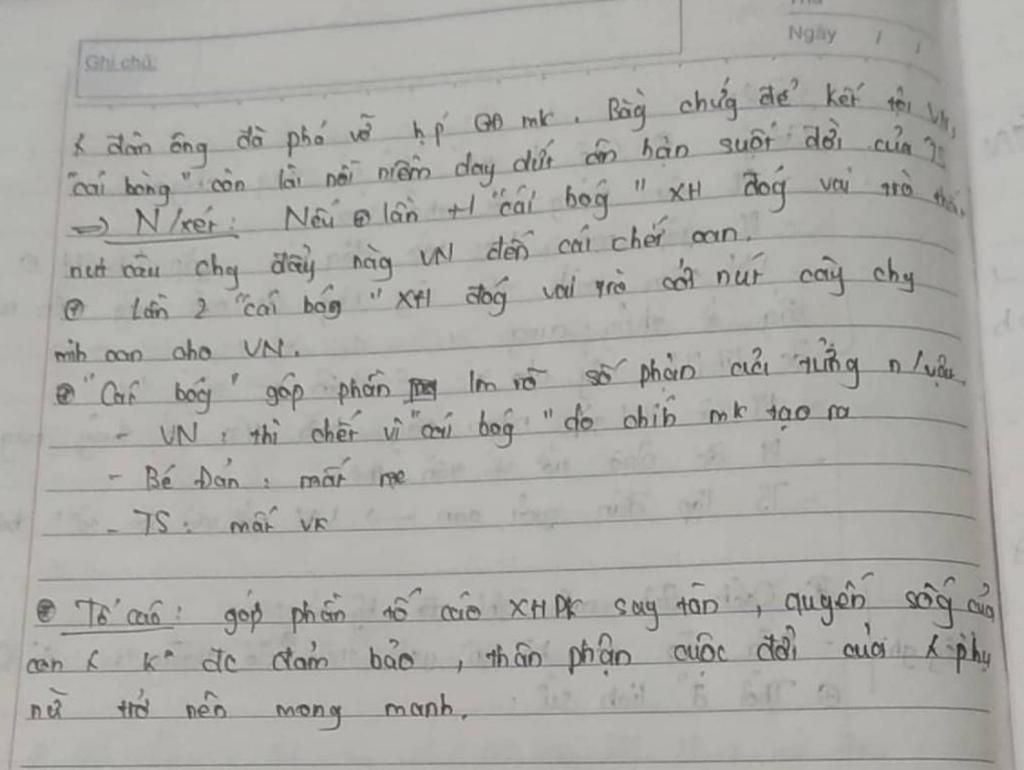 Ghi chú:
Ngày / /
đàn ông đã phá vỡ hp GĐ mk. Bằg chứg để kết tội VN,
"cái bóng" còn lài nỗi niềm day dứt ân hận suốt đời của TS
=> N/xét: Nếu lần +1 "cái bóg" XH đóg vai trò thắ.
nút câu chy đẩy nàg VN đến cái chết oan.
+ Lần 2 "cái bóg" XH đóg vai trò cởi nút câu chy
mih oan cho VN.
"Cái bóg" góp phần lm rõ số phận của từng n/vật.
- VN: thì chết vì "cái bóg" do chíh mk tạo ra
- Bé Đản: mất mẹ
- TS: mất vk
Tố cáo: góp phần tố cáo XHPK suy tàn, quyền sốg của
con k° đc đảm bảo, thân phận cuộc đời của phụ
nữ trở nên mong manh.